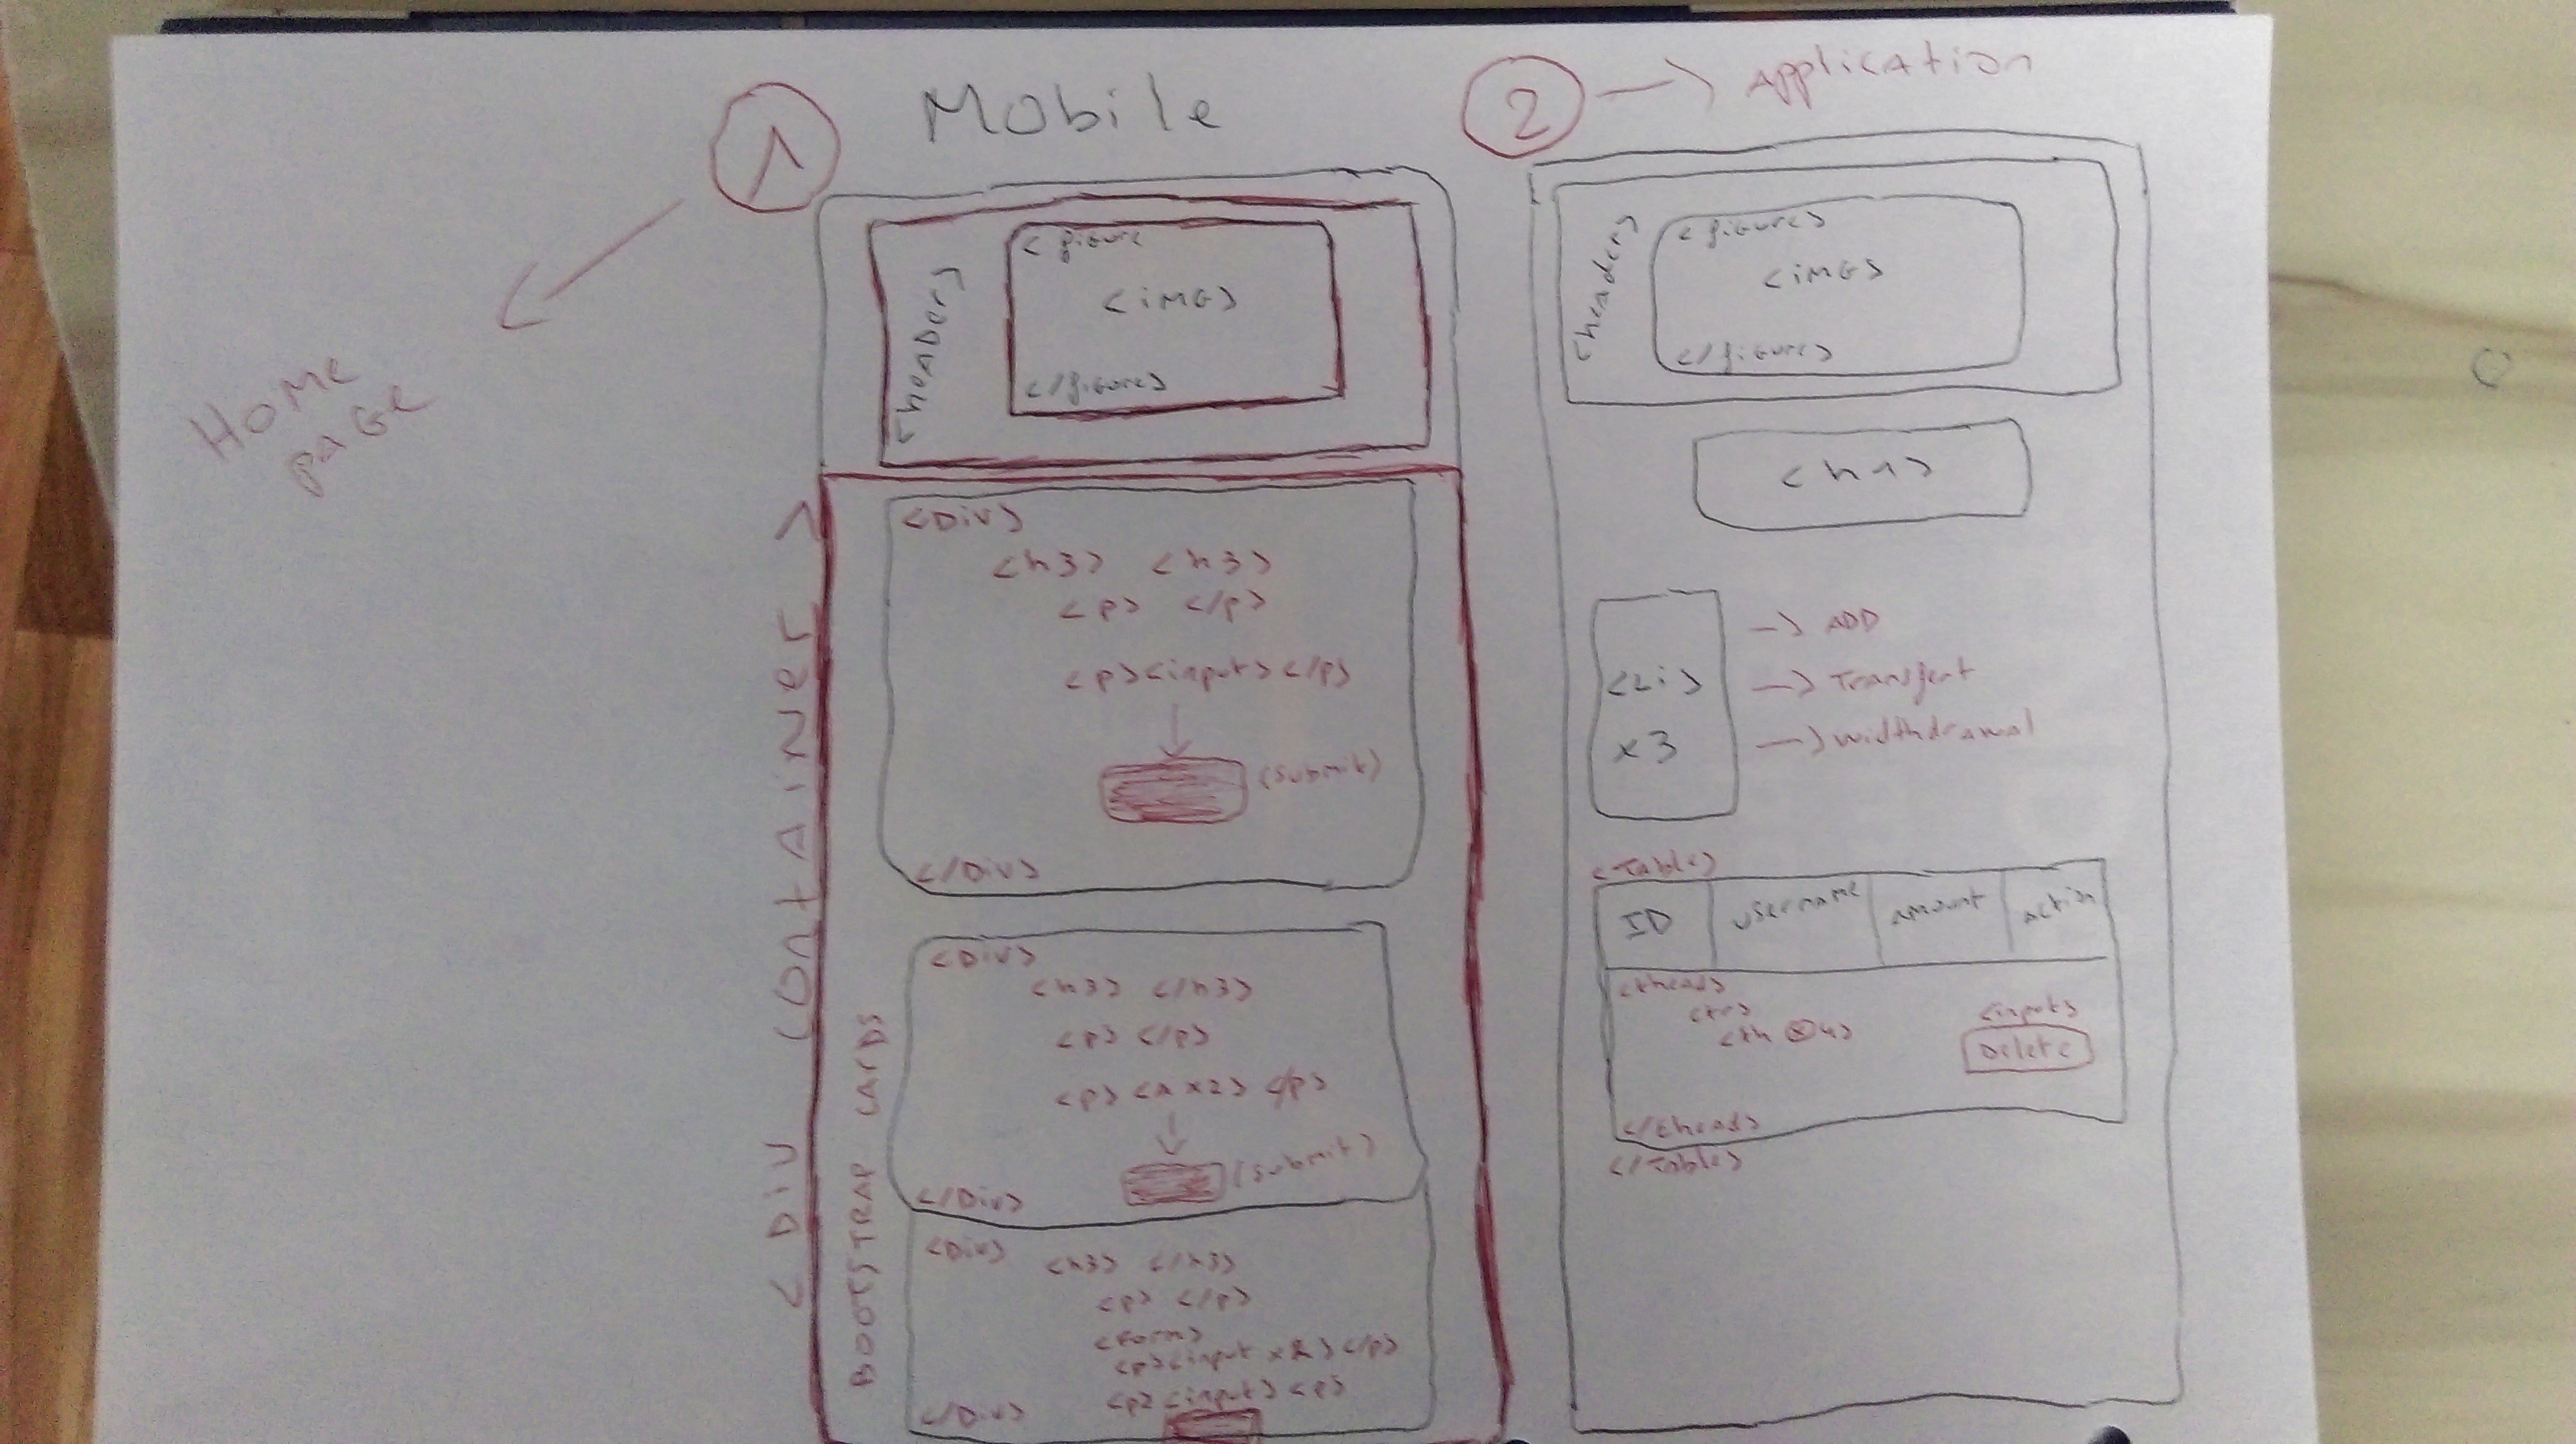 1
Mobile
HOME
PAGE
<header>
<figure
<iMG>
</figure>
<DIV CONTAINER>
BOOTSTRAP CARDS
<Div>
<h3> <h3>
<p> </p>
<p><input></p>
(submit)
</Div>
<Div>
<h3> </h3>
<p> </p>
<p> <a x2> </p>
(submit)
</Div>
<Div>
<h3> </h3>
<p> </p>
<form>
<p><input x2></p>
<p> <input> <p>
</Div>
2 → Application
<header>
<figure>
<iMG>
</figure>
<h1>
<Li>
x3
→ ADD
→ Transfert
→ widthdrawal
<Table>
ID username amount action
<thead>
<tr>
<th x4>
<input>
Delete
</thead>
</Table>